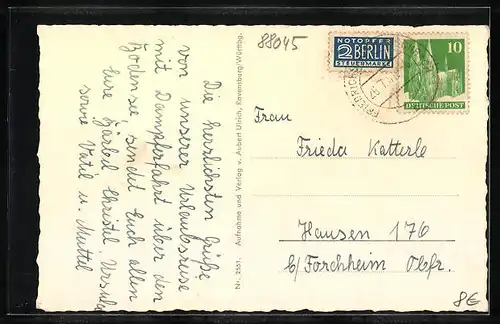 88045
NOTOPFER
2 BERLIN
STEUERMARKE
10
DEUTSCHE POST
Die herrlichsten Grüße
von unserer Urlaubsreise
mit Dampferfahrt über den
Bodensee sendet Euch allen
Eure Bärbel Christel Ursula
sowie Vatil u. Muttel
Nr. 2551. Aufnahme und Verlag v. Ansbert Ulrich, Ravensburg/Wttbg.
Frau
Frieda Katterle
Hausen 176
b/Forchheim Obfr.
8€